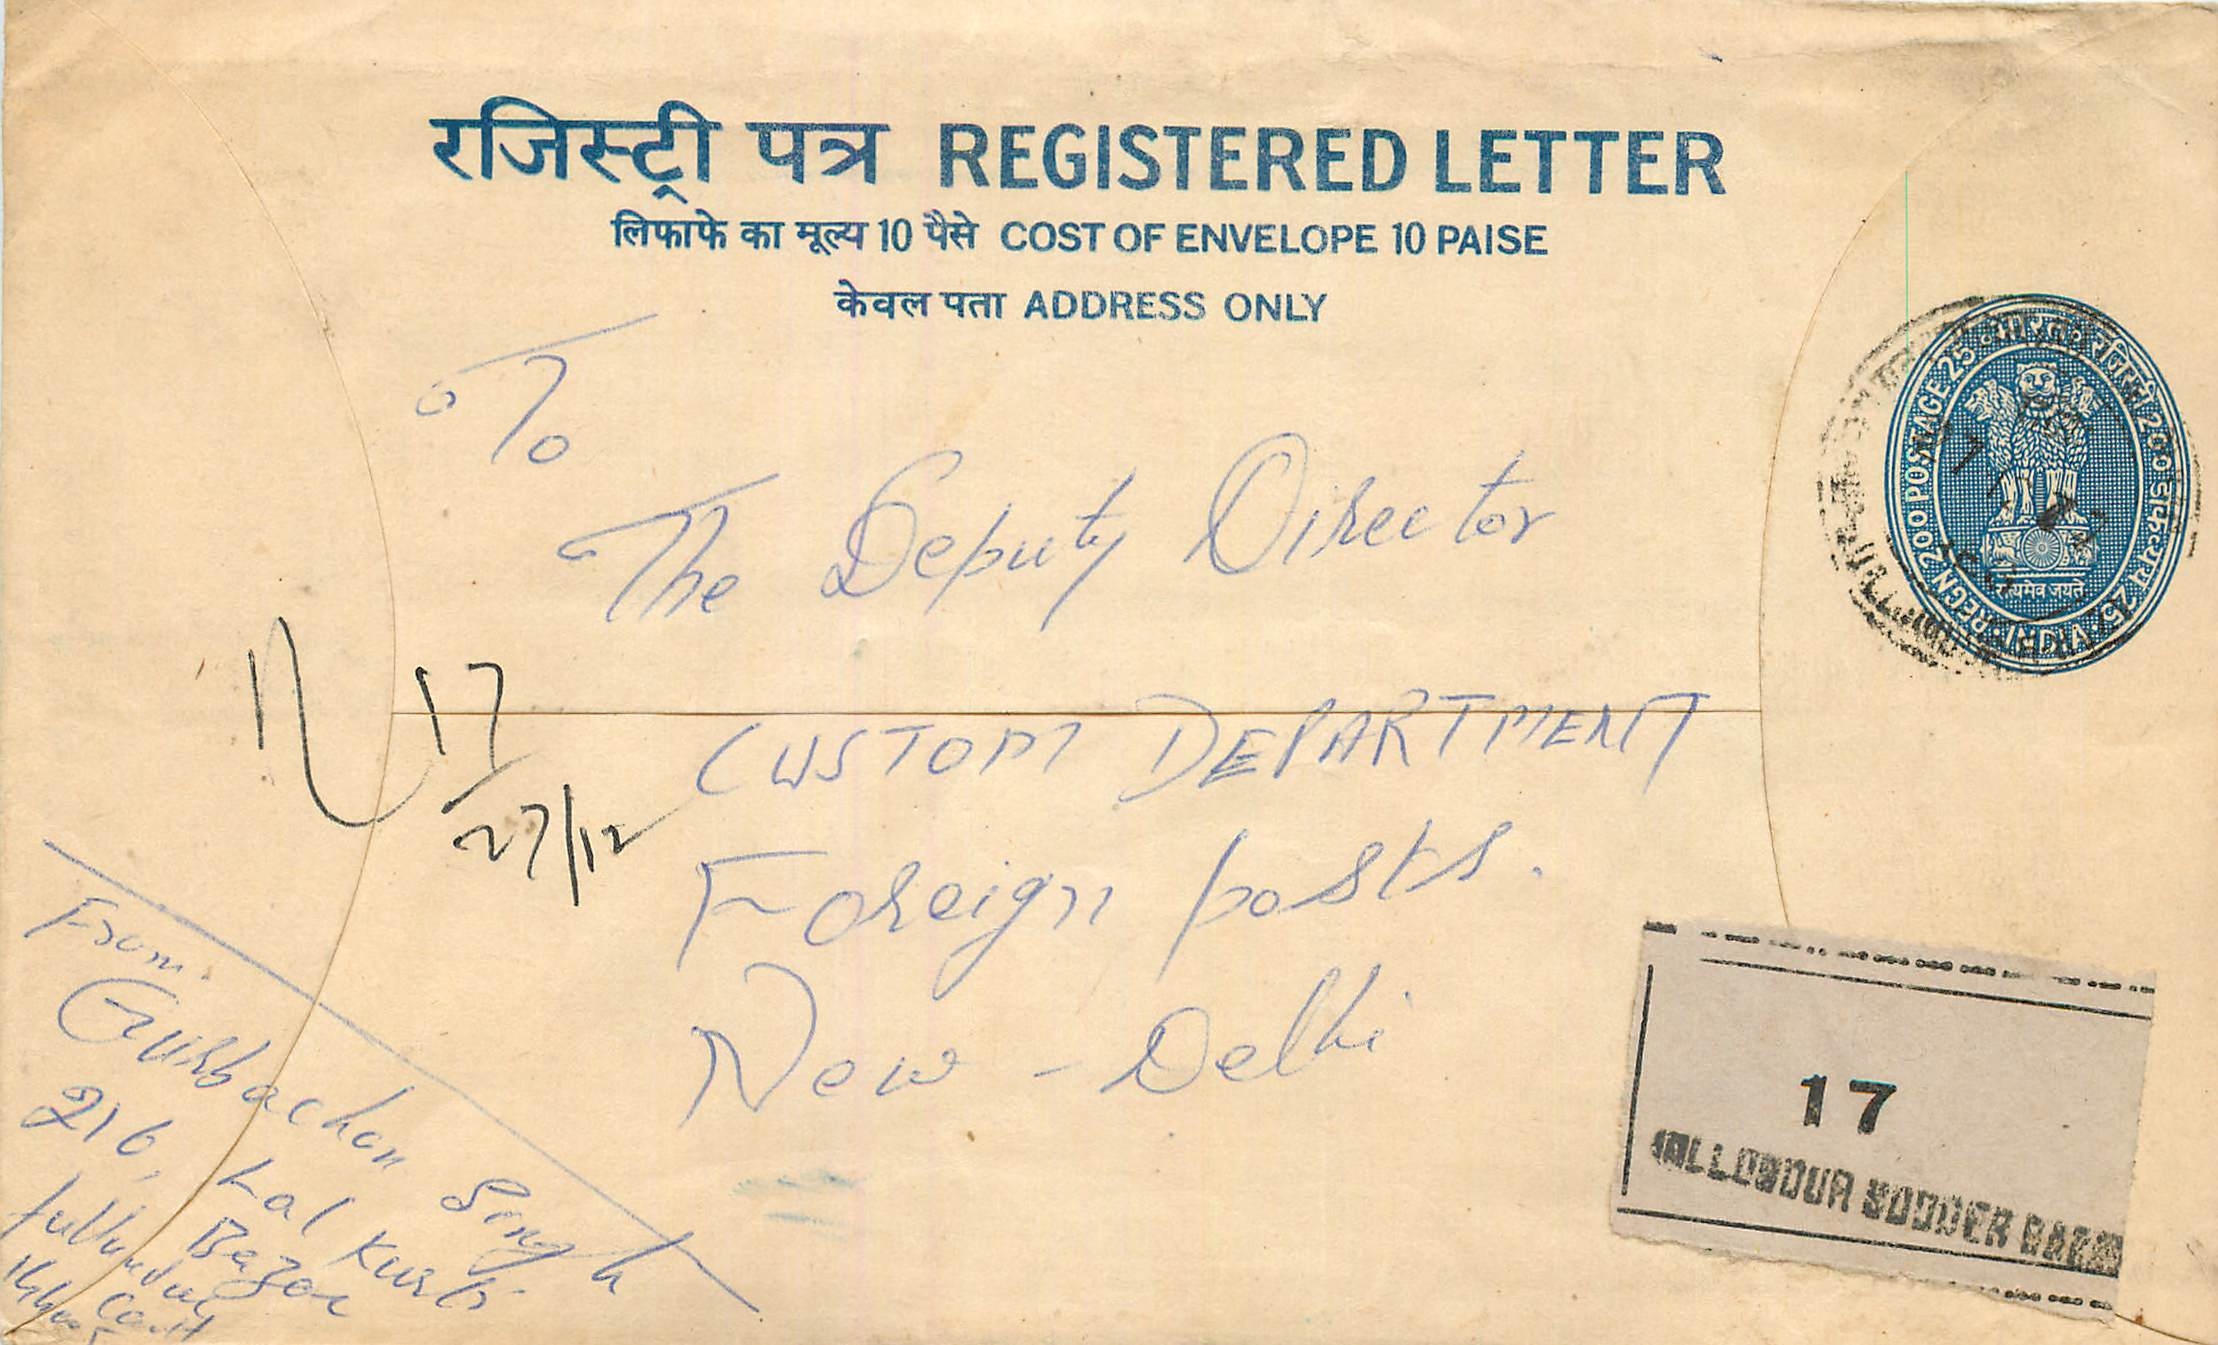 रजिस्ट्री पत्र REGISTERED LETTER
लिफाफे का मूल्य 10 पैसे COST OF ENVELOPE 10 PAISE
केवल पता ADDRESS ONLY
भारत रजिस्ट्री 200 डाकव्यय 25
REGN 200 POSTAGE 25
सत्यमेव जयते
INDIA
To
The Deputy Director
CUSTOM DEPARTMENT
Foreign posts.
New-Delhi
17
27/12
From.
Gurbachan Singh
216, Lal Kurti
Bazar
Jullundur
Cantt
17
JULLUNDUR SUDDER BAZA